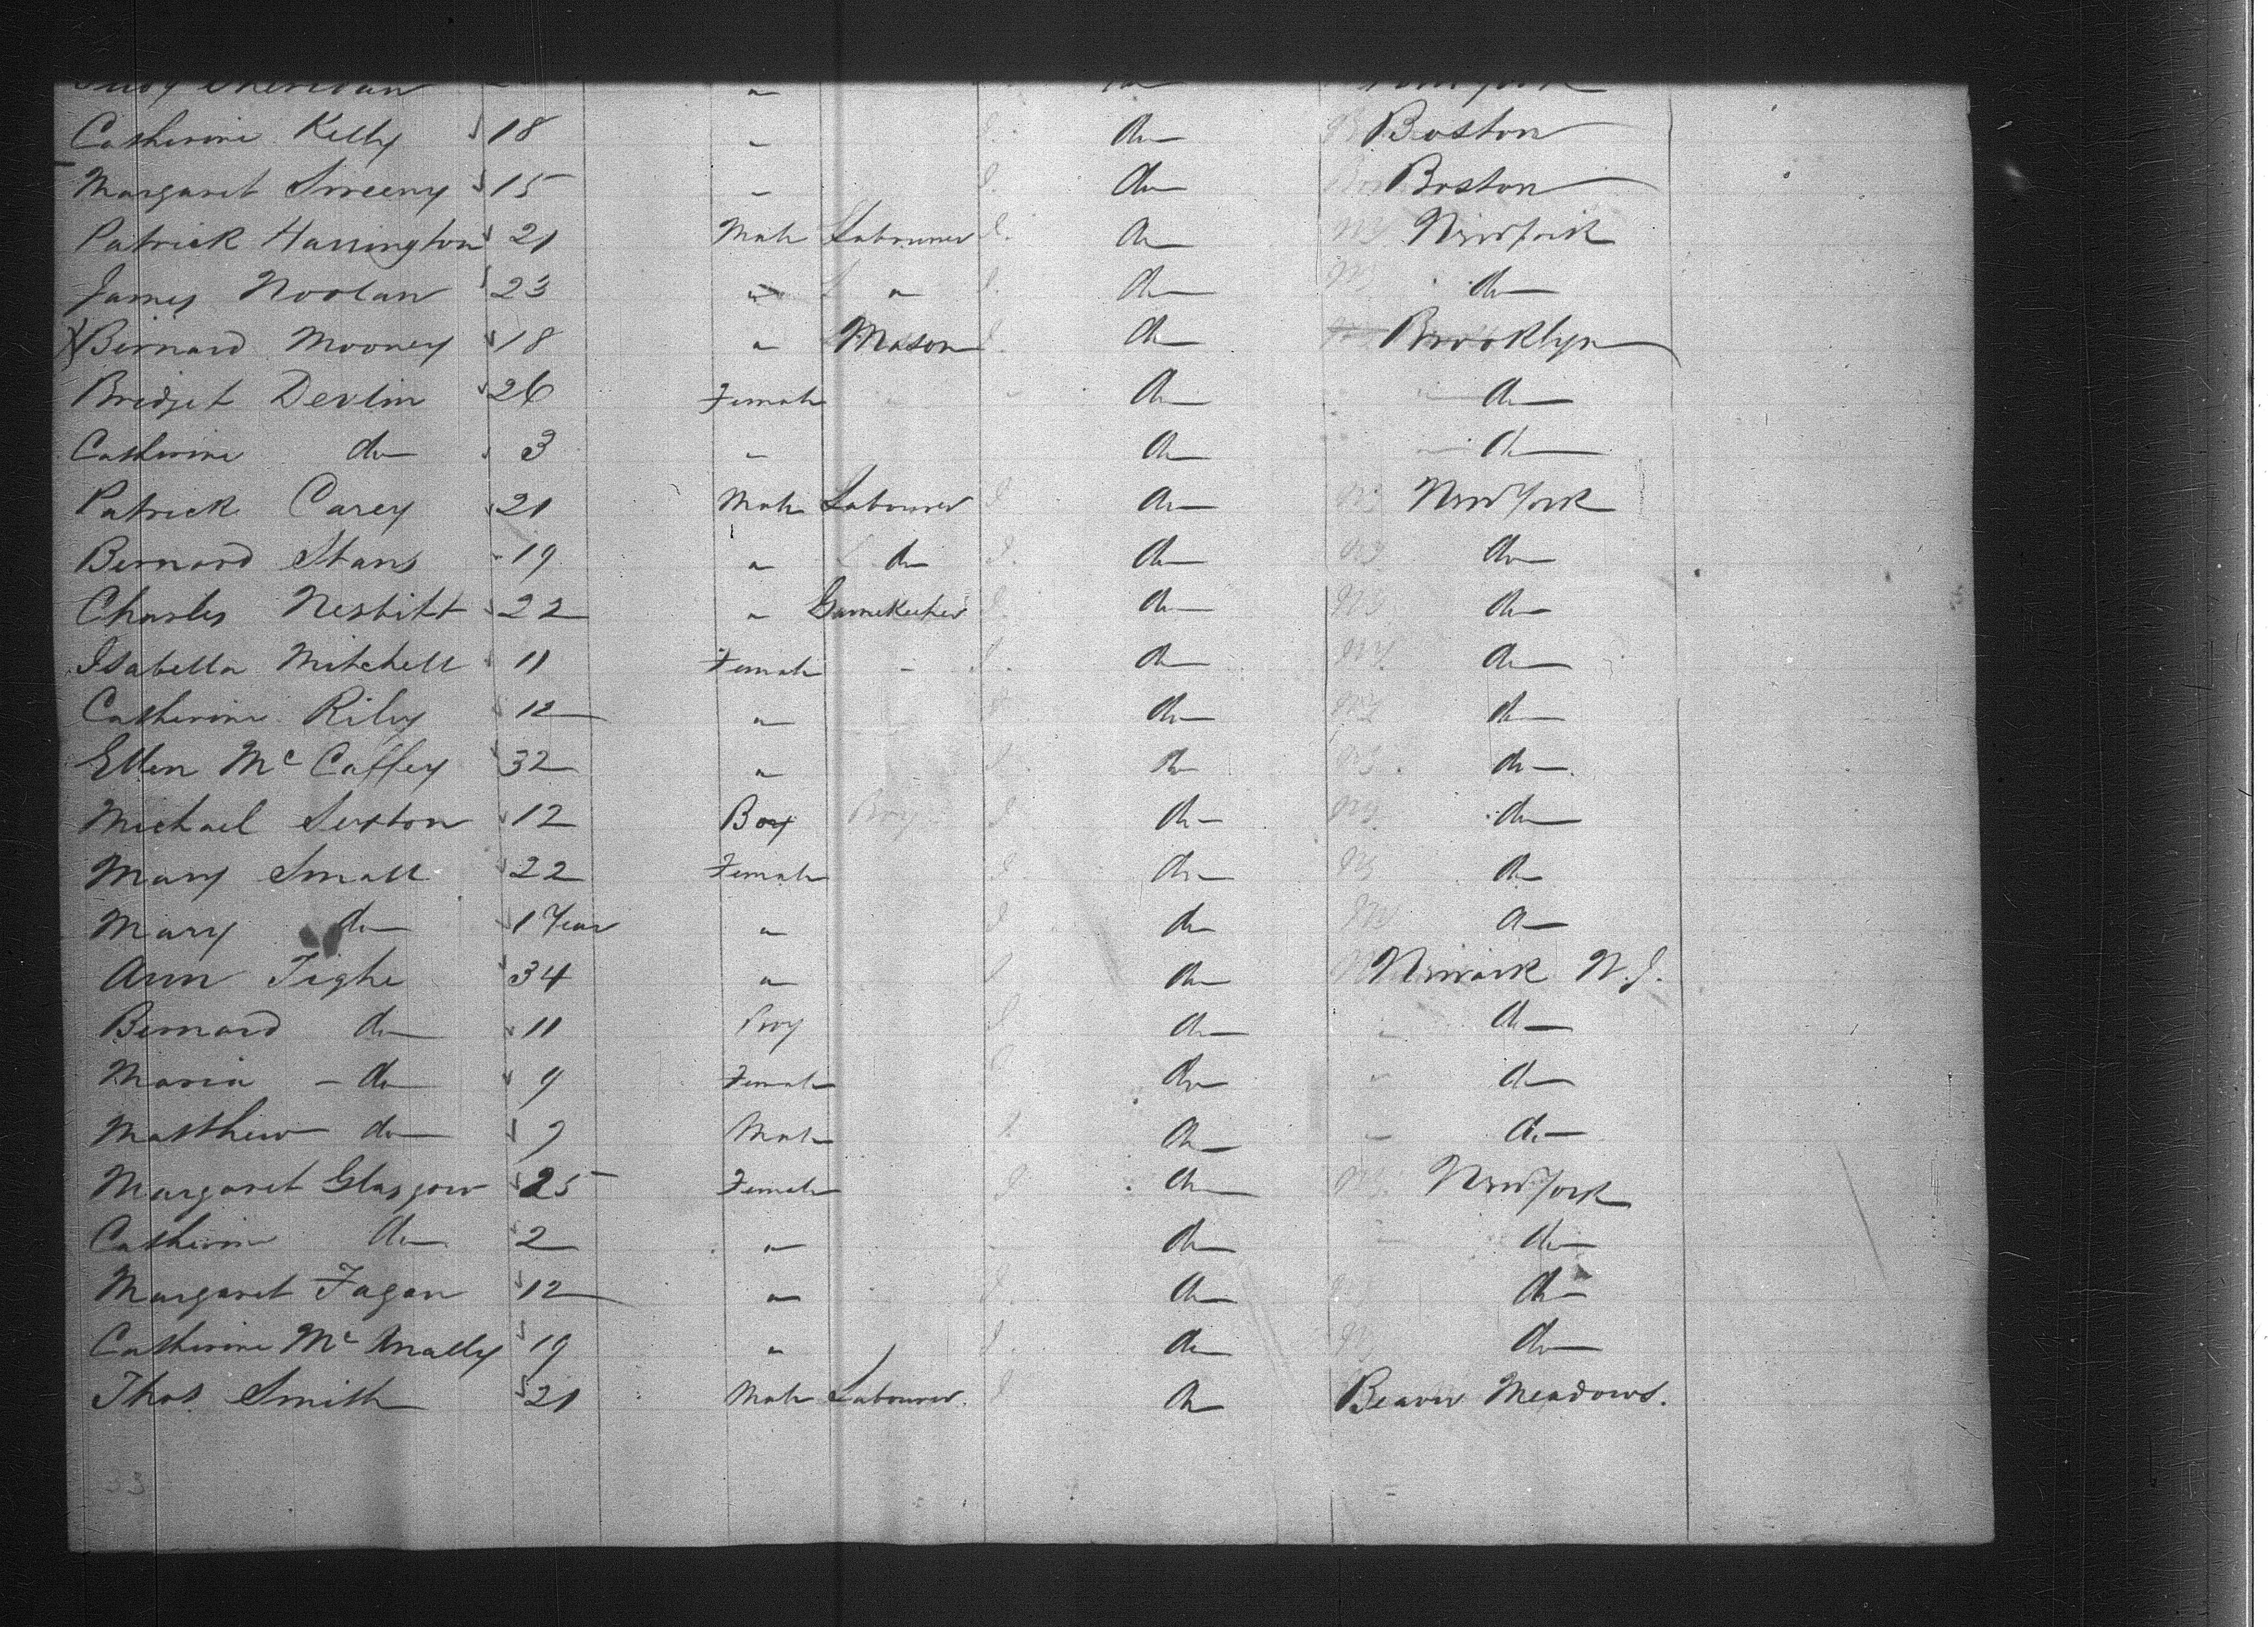 Sheridan "
Catherine Kelly 18 " do Boston
Margaret Sweeny 15 " do Boston
Patrick Harrington 21 Male Labourer do New York
James Noolan 23 " " do do
X Bernard Mooney 18 " Mason do Brooklyn
Bridget Devlin 26 Female do do
Catherine do 3 " do do
Patrick Carey 21 Male Labourer do New York
Bernard 19 " do do do
Charles Nesbitt 22 " Gamekeeper do do
Isabella Mitchell 11 Female do do
Catherine Riley 12 " do do
Ellen Mc Caffey 32 " do do
Michael Sexton 12 Boy Boy do do
Mary Small 22 Female do do
Mary do 1 Year " do do
Ann Tighe 34 " do Newark N.J.
Bernard do 11 Boy do do
Maria - do 9 Female do do
Matthew do 7 Male do do
Margaret Glasgow 25 Female do New York
Catherine do 2 " do do
Margaret Fagan 12 " do do
Catherine Mc Anally 19 " do do
Thos. Smith 21 Male Labourer do Beaver Meadows.
33